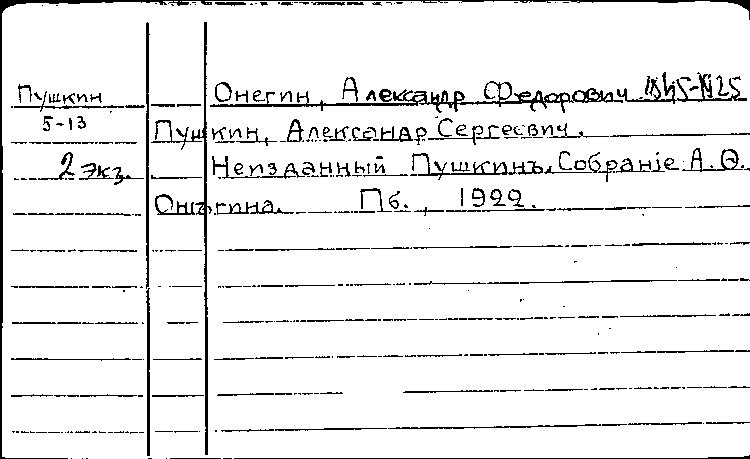 Пушкин
5-13
2 экз.
Онегин, Александр Федорович 1845-1925
Пушкин, Александр Сергеевич.
Неизданный Пушкинъ. Собраніе А.Ѳ.
Онѣгина. Пб., 1922.